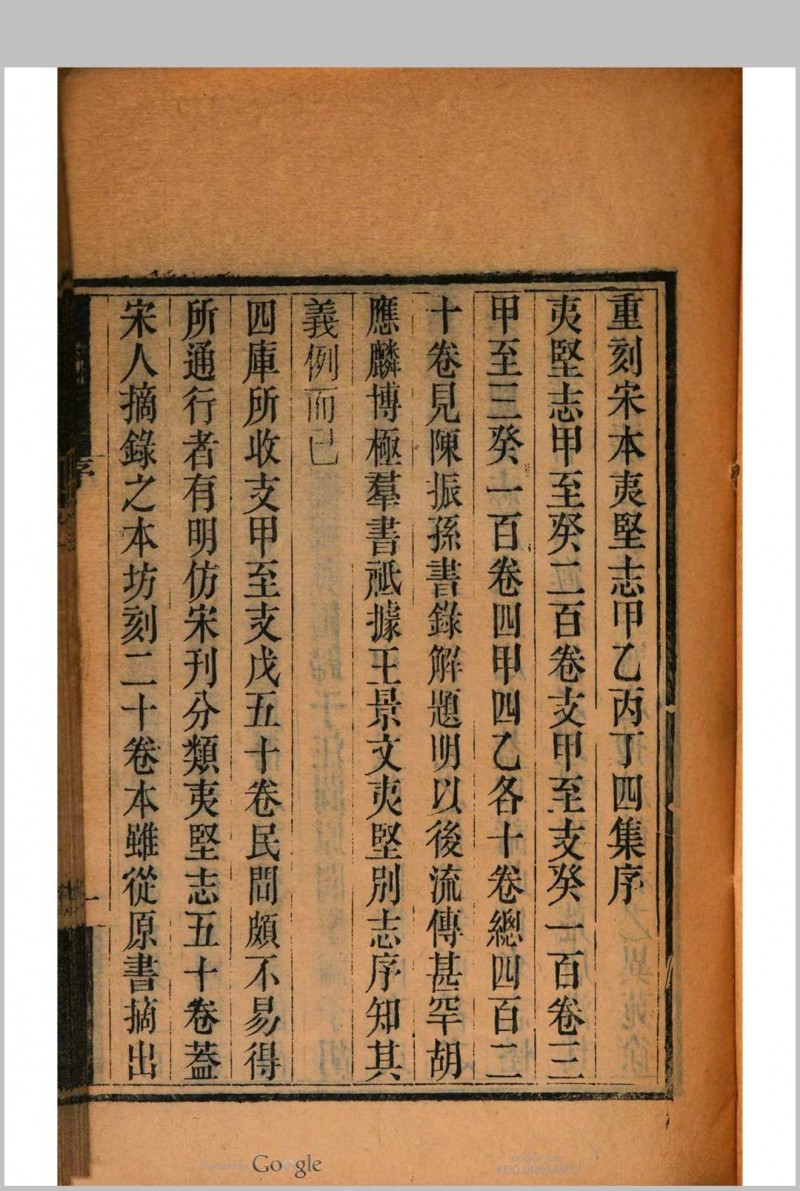 重刻宋本夷堅志甲乙丙丁四集序
夷堅志甲至癸二百卷支甲至支癸一百卷三
甲至三癸一百卷四甲四乙各十卷總四百二
十卷見陳振孫書錄解題明以後流傳甚罕胡
應麟博極羣書祗據王景文夷堅別志序知其
義例而已
四庫所收支甲至支戊五十卷民間頗不易得
所通行者有明仿宋刊分類夷堅志五十卷蓋
宋人摘錄之本坊刻二十卷本雖從原書摘出
序
一
Google
KEIO UNIVERSITY